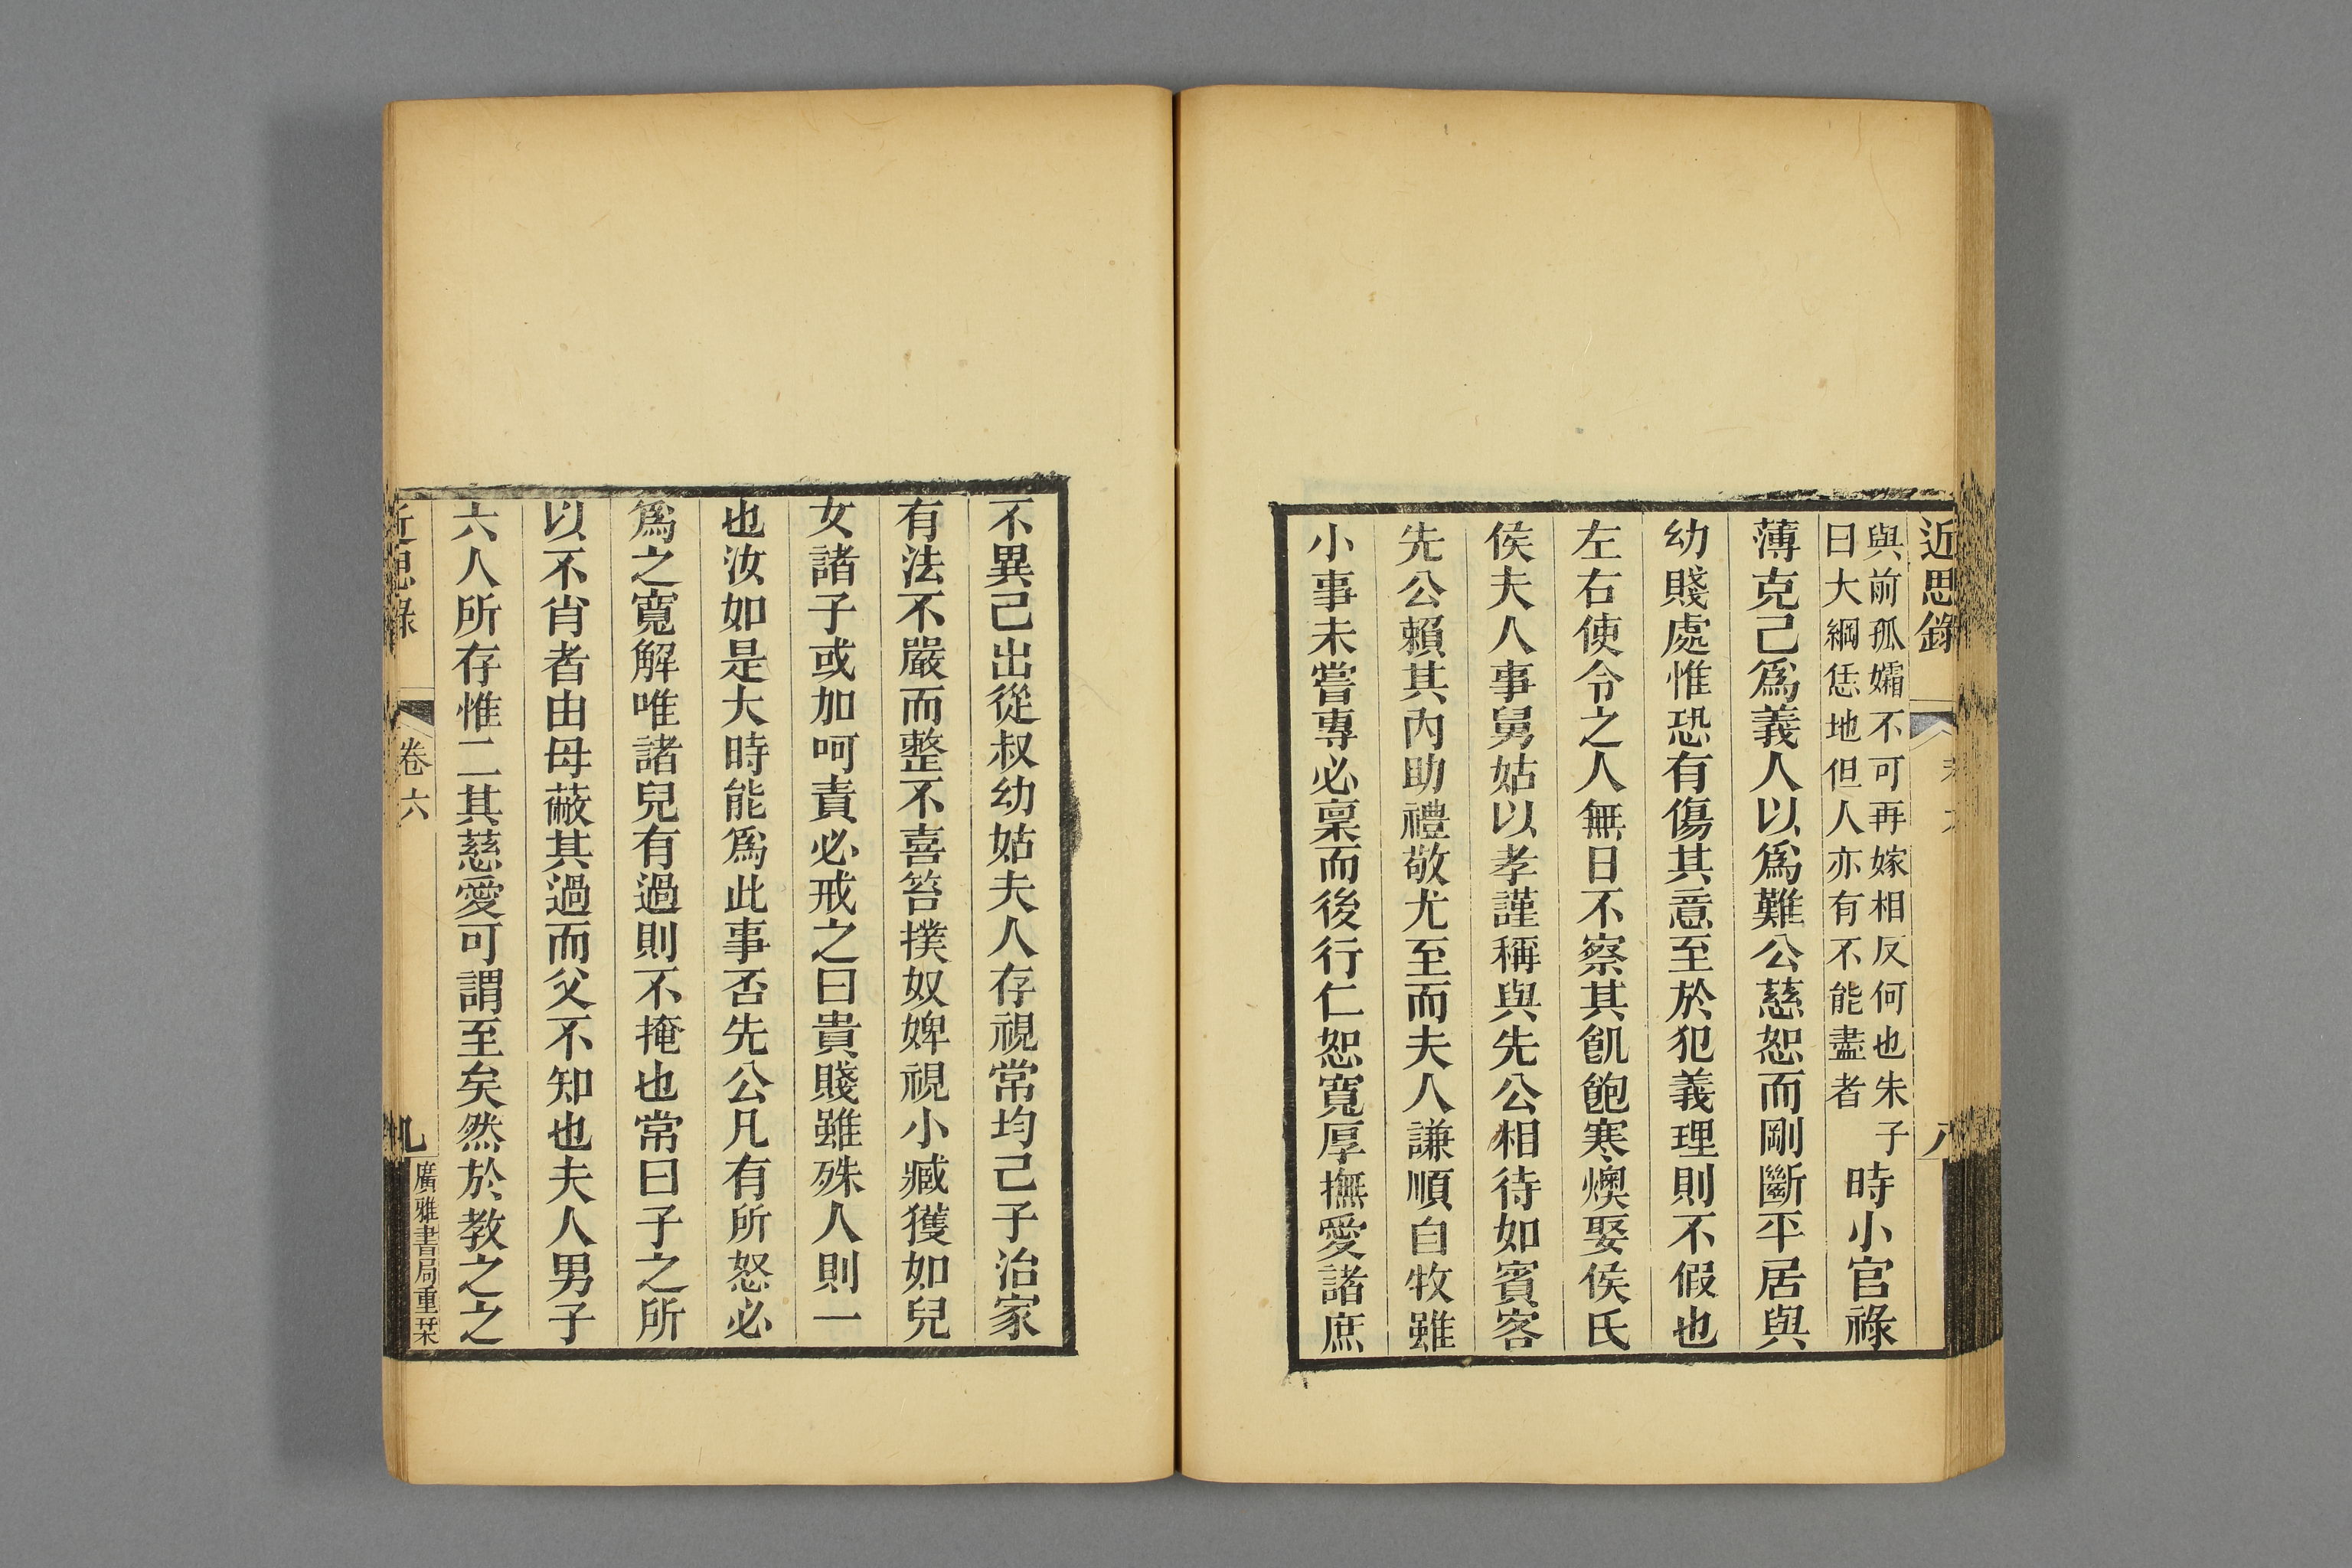 近思錄
八
與前孤孀不可再嫁相反何也朱子
曰大綱恁地但人亦有不能盡者
時小官祿
薄克己爲義人以爲難公慈恕而剛斷平居與
幼賤處惟恐有傷其意至於犯義理則不假也
左右使令之人無日不察其飢飽寒燠娶侯氏
侯夫人事舅姑以孝謹稱與先公相待如賓客
先公賴其內助禮敬尤至而夫人謙順自牧雖
小事未嘗專必稟而後行仁恕寬厚撫愛諸庶
不異己出從叔幼姑夫人存視常均己子治家
有法不嚴而整不喜笞撲奴婢視小臧獲如兒
女諸子或加呵責必戒之曰貴賤雖殊人則一
也汝如是大時能爲此事否先公凡有所怒必
爲之寬解唯諸兒有過則不掩也常曰子之所
以不肖者由母蔽其過而父不知也夫人男子
六人所存惟二其慈愛可謂至矣然於教之之
近思錄
卷六
九
廣雅書局重栞